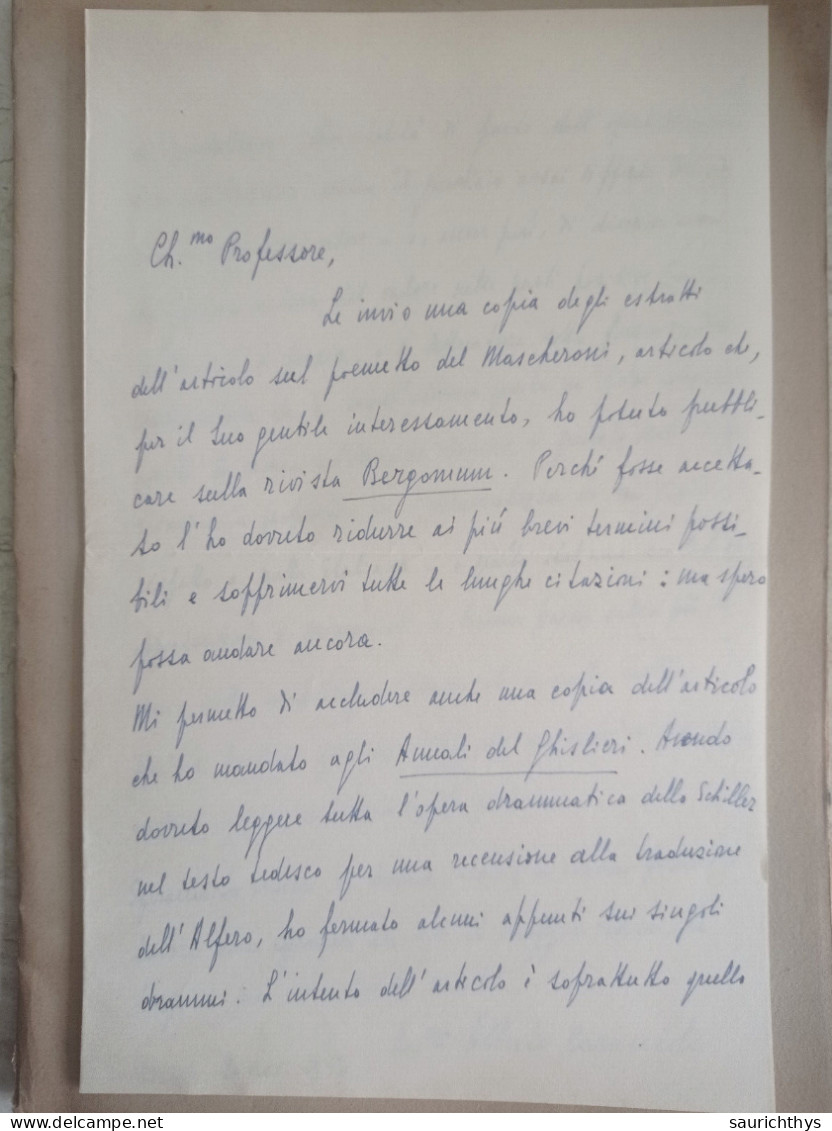 Ch.mo Professore,
Le invio una copia degli estratti
dell'articolo sul poemetto del Mascheroni, articolo che,
per il Suo gentile interessamento, ho potuto pubbli-
care sulla rivista Bergomum. Perché fosse accetta-
to l'ho dovuto ridurre ai più brevi termini possi-
bili e sopprimervi tutte le lunghe citazioni: ma spero
possa andare ancora.
Mi permetto di accludere anche una copia dell'articolo
che ho mandato agli Annali del Ghislieri. Avendo
dovuto leggere tutta l'opera drammatica dello Schiller
nel testo tedesco per una recensione alla traduzione
dell'Alfero, ho fermato alcuni appunti sui singoli
drammi. L'intento dell'articolo è soprattutto quello
saurichthys